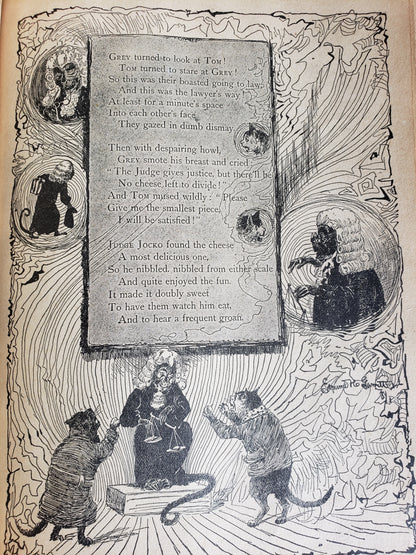 GREY turned to look at TOM!
TOM turned to stare at GREY!
So this was their boasting going to law,
And this was the lawyer's way!
At least for a minute's space
Into each other's face
They gazed in dumb dismay.
Then with despairing howl,
GREY smote his breast and cried:
"The Judge gives justice, but there'll be
No cheese left to divide!"
And TOM mused wildly: "Please
Give me the smallest piece,
I will be satisfied!"
JUDGE JOCKO found the cheese
A most delicious one,
So he nibbled, nibbled from either scale
And quite enjoyed the fun.
It made it doubly sweet
To have them watch him eat,
And to hear a frequent groan.